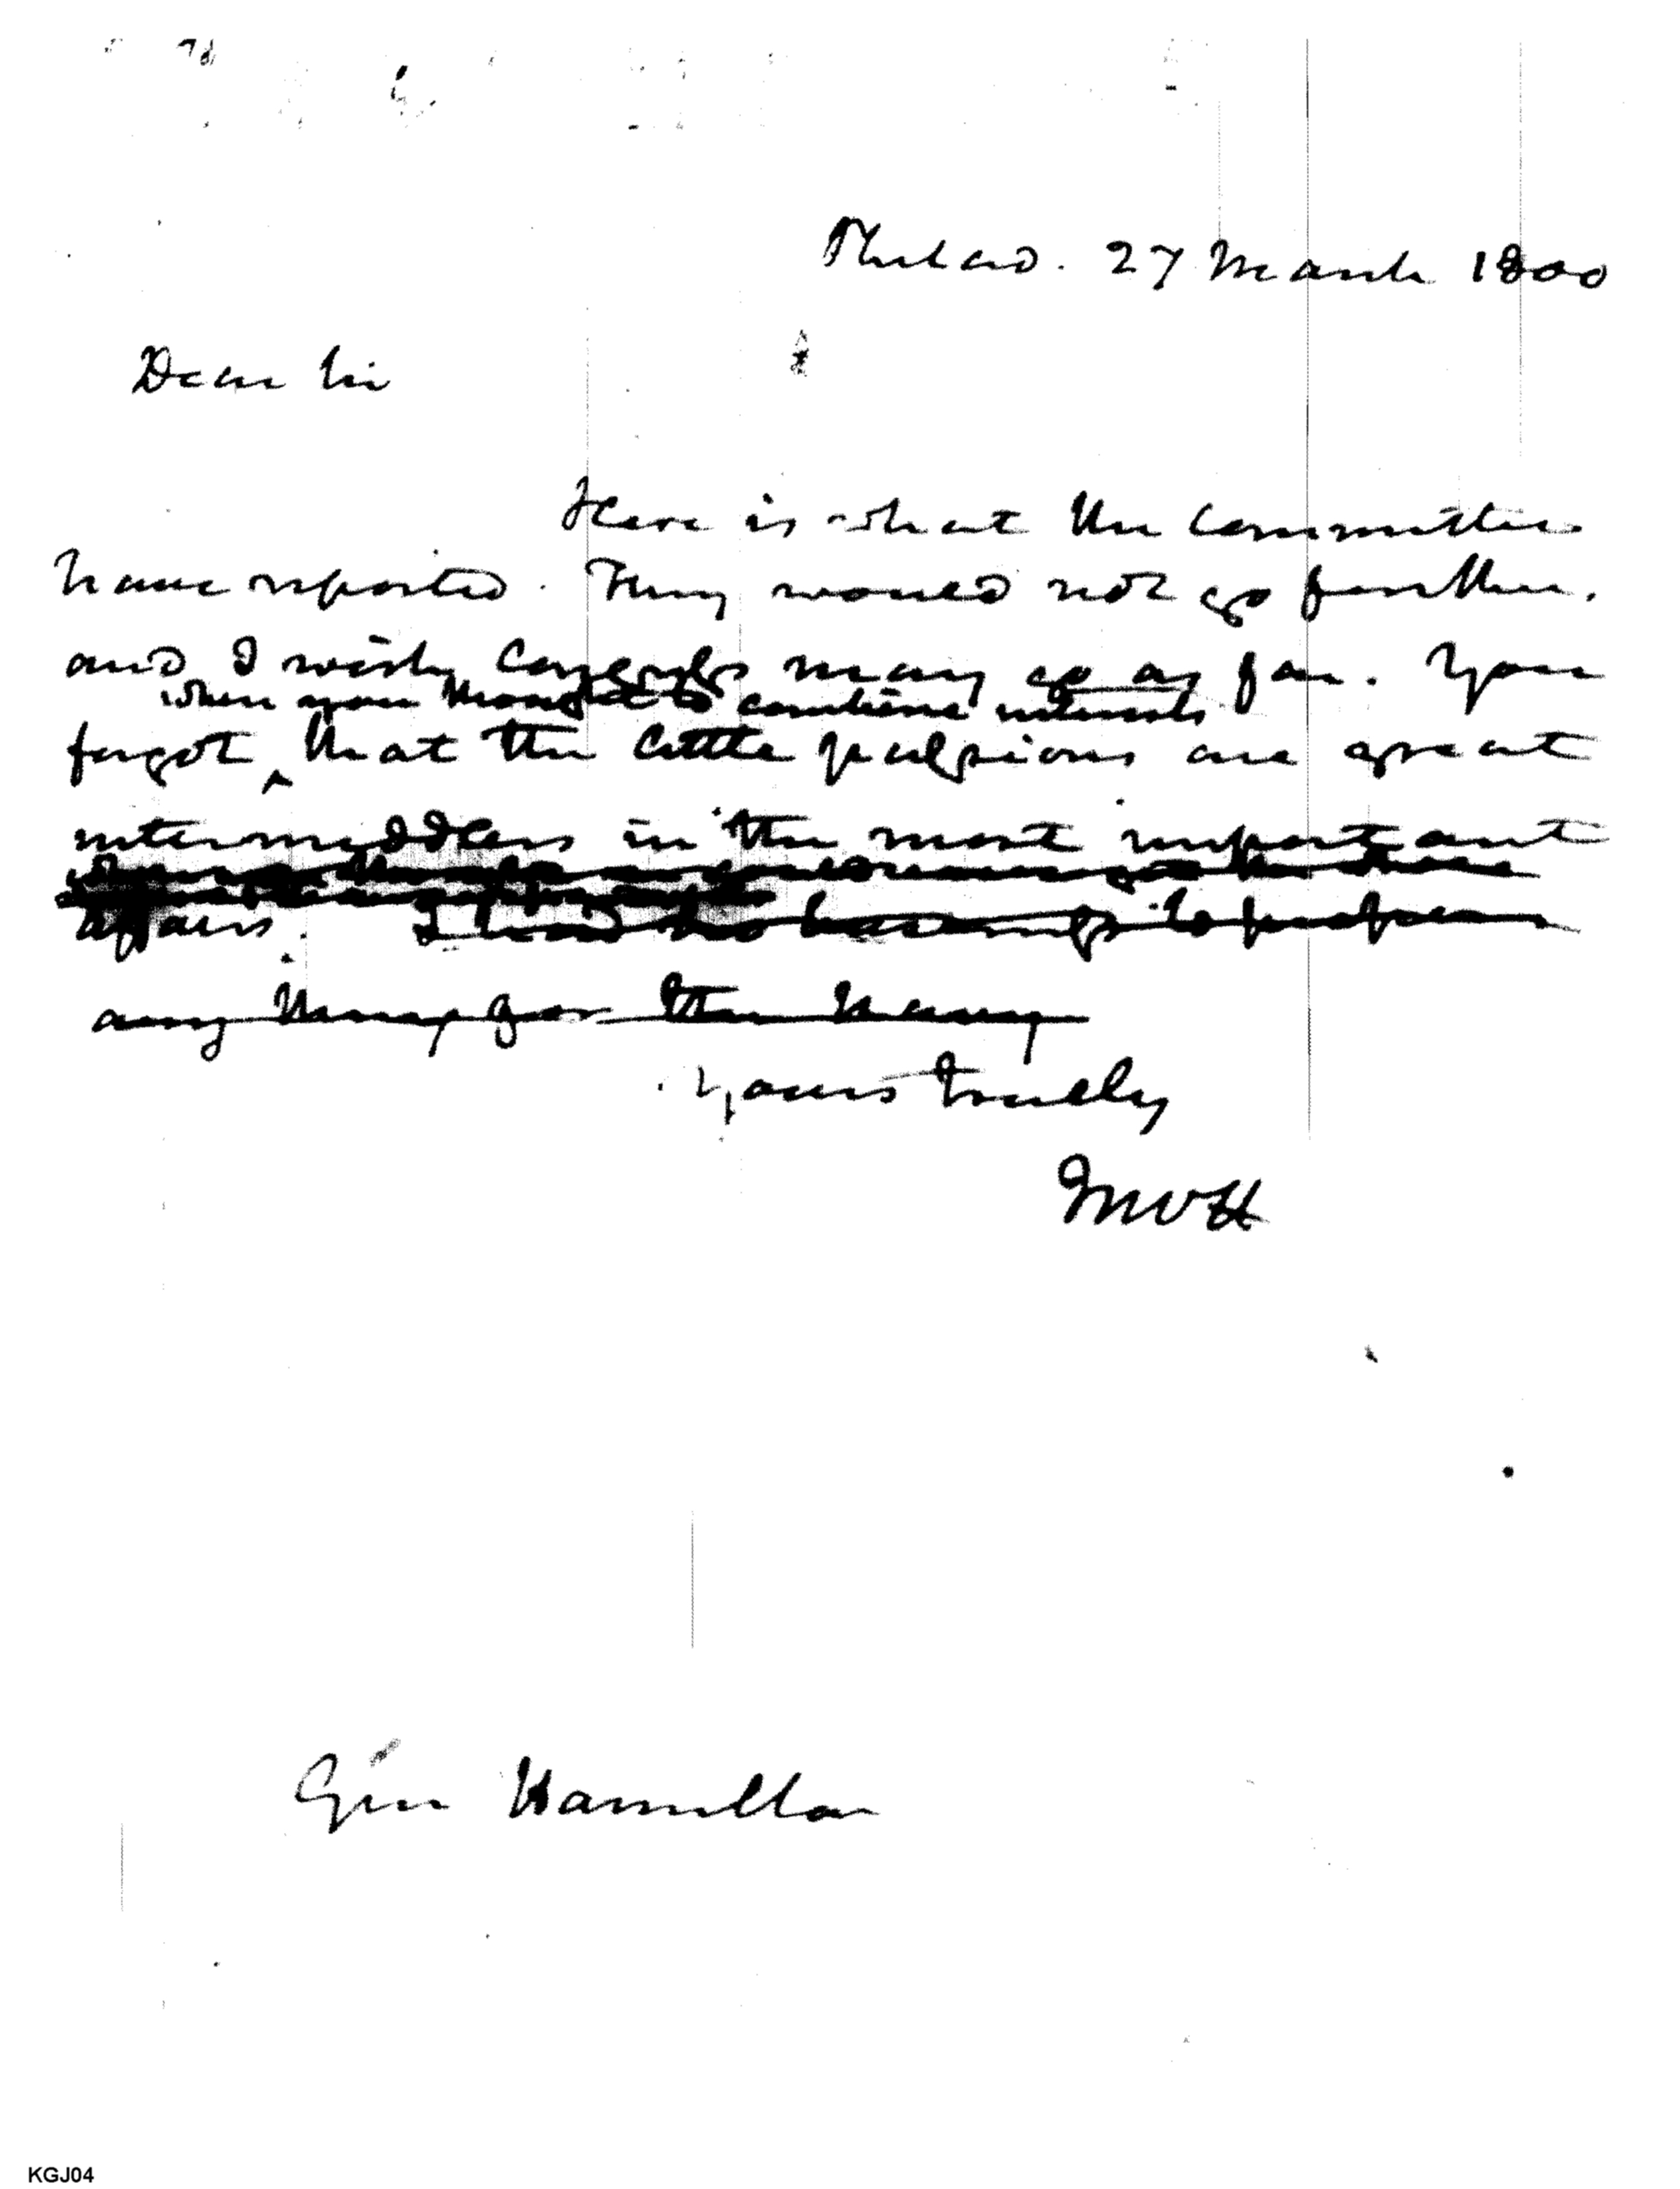 Philad. 27 March 1800
Dear Sir
Here is what the Committee
have reported. They would not go further.
and I wish Congress may go as far. You
when you thought to combine interests
forgot ‸ that the little passions are great
intermeddlers in the most important
affairs. I had no hearings to
any thing for the Navy
Yours truely
Gen Hamilton
KGJ04